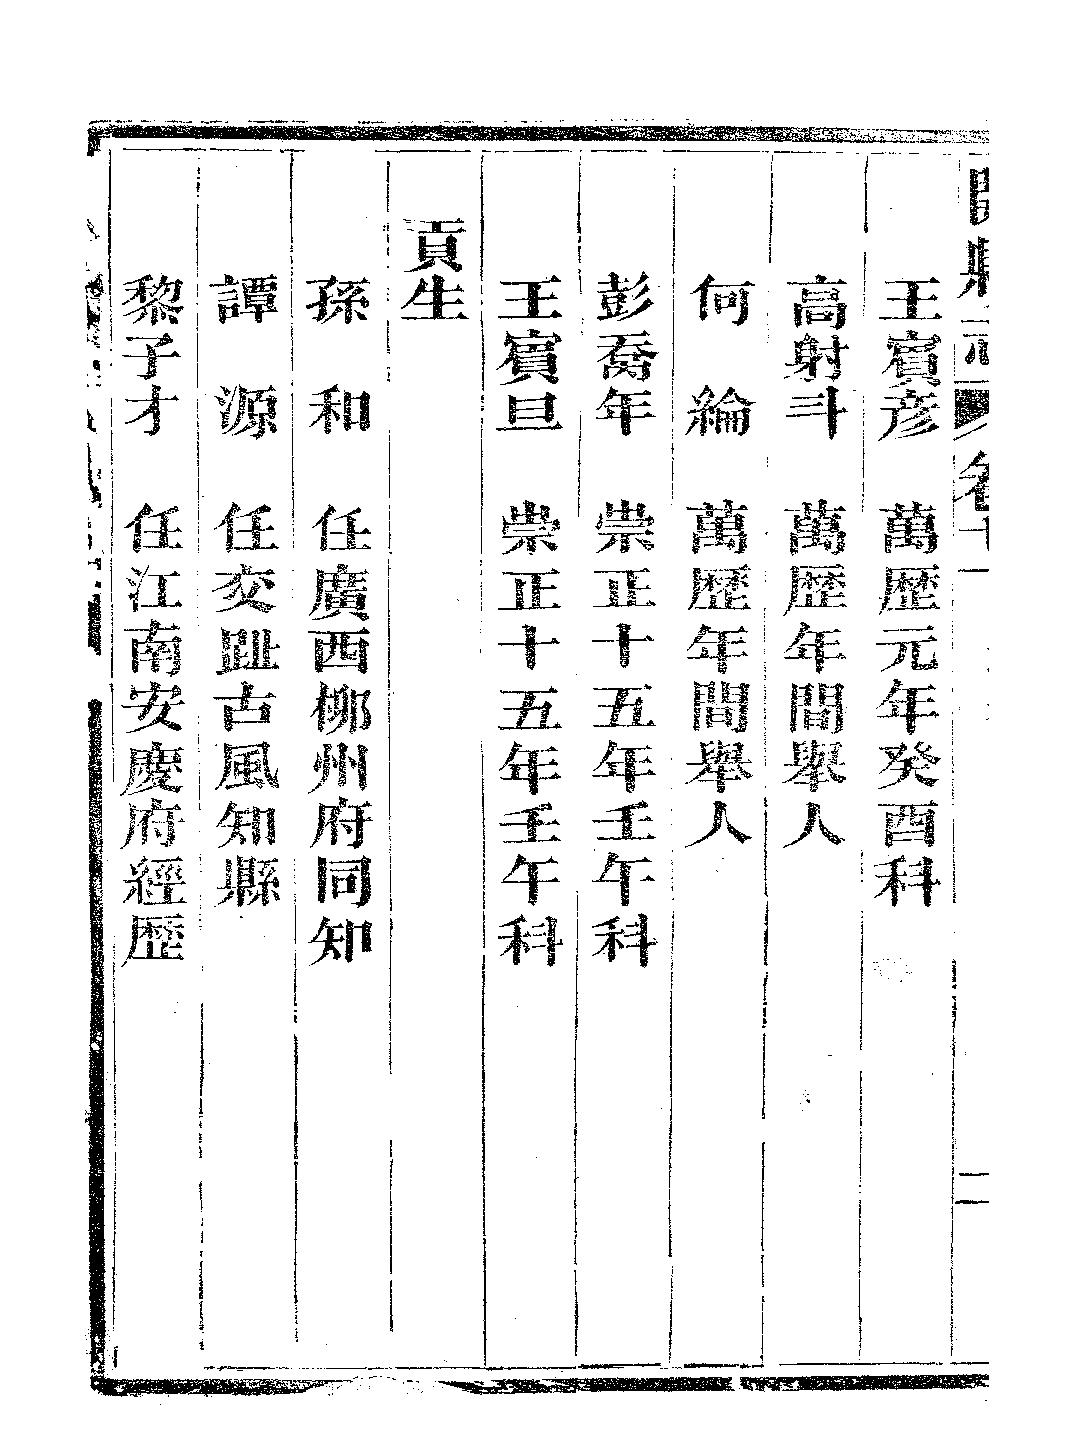 王賓彦　萬歴元年癸酉科
高射斗　萬歴年間舉人
何　綸　萬歴年間舉人
彭喬年　崇正十五年壬午科
王賓旦　崇正十五年壬午科
貢生
孫　和　任廣西柳州府同知
譚　源　任交趾古風知縣
黎子才　任江南安慶府經歴
二